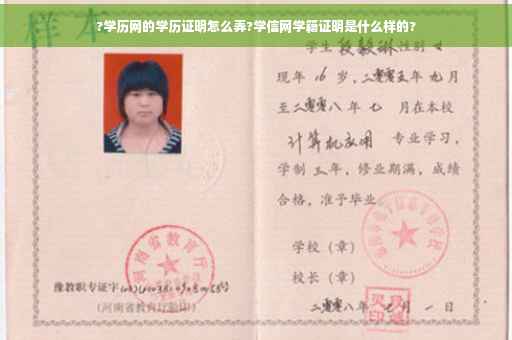 ?学历网的学历证明怎么弄?学信网学籍证明是什么样的?
样本
学生 段毅琳 性别 女
现年 16 岁，二零零五年 九月
至二零零八年 七 月在本校
计算机应用 专业学习，
学制 三年，修业期满，成绩
合格，准予毕业
学校（章）
校长（章）
二零零八年 七 月 一 日
河南省教育厅
豫教职专证字
（河南省教育厅验印）